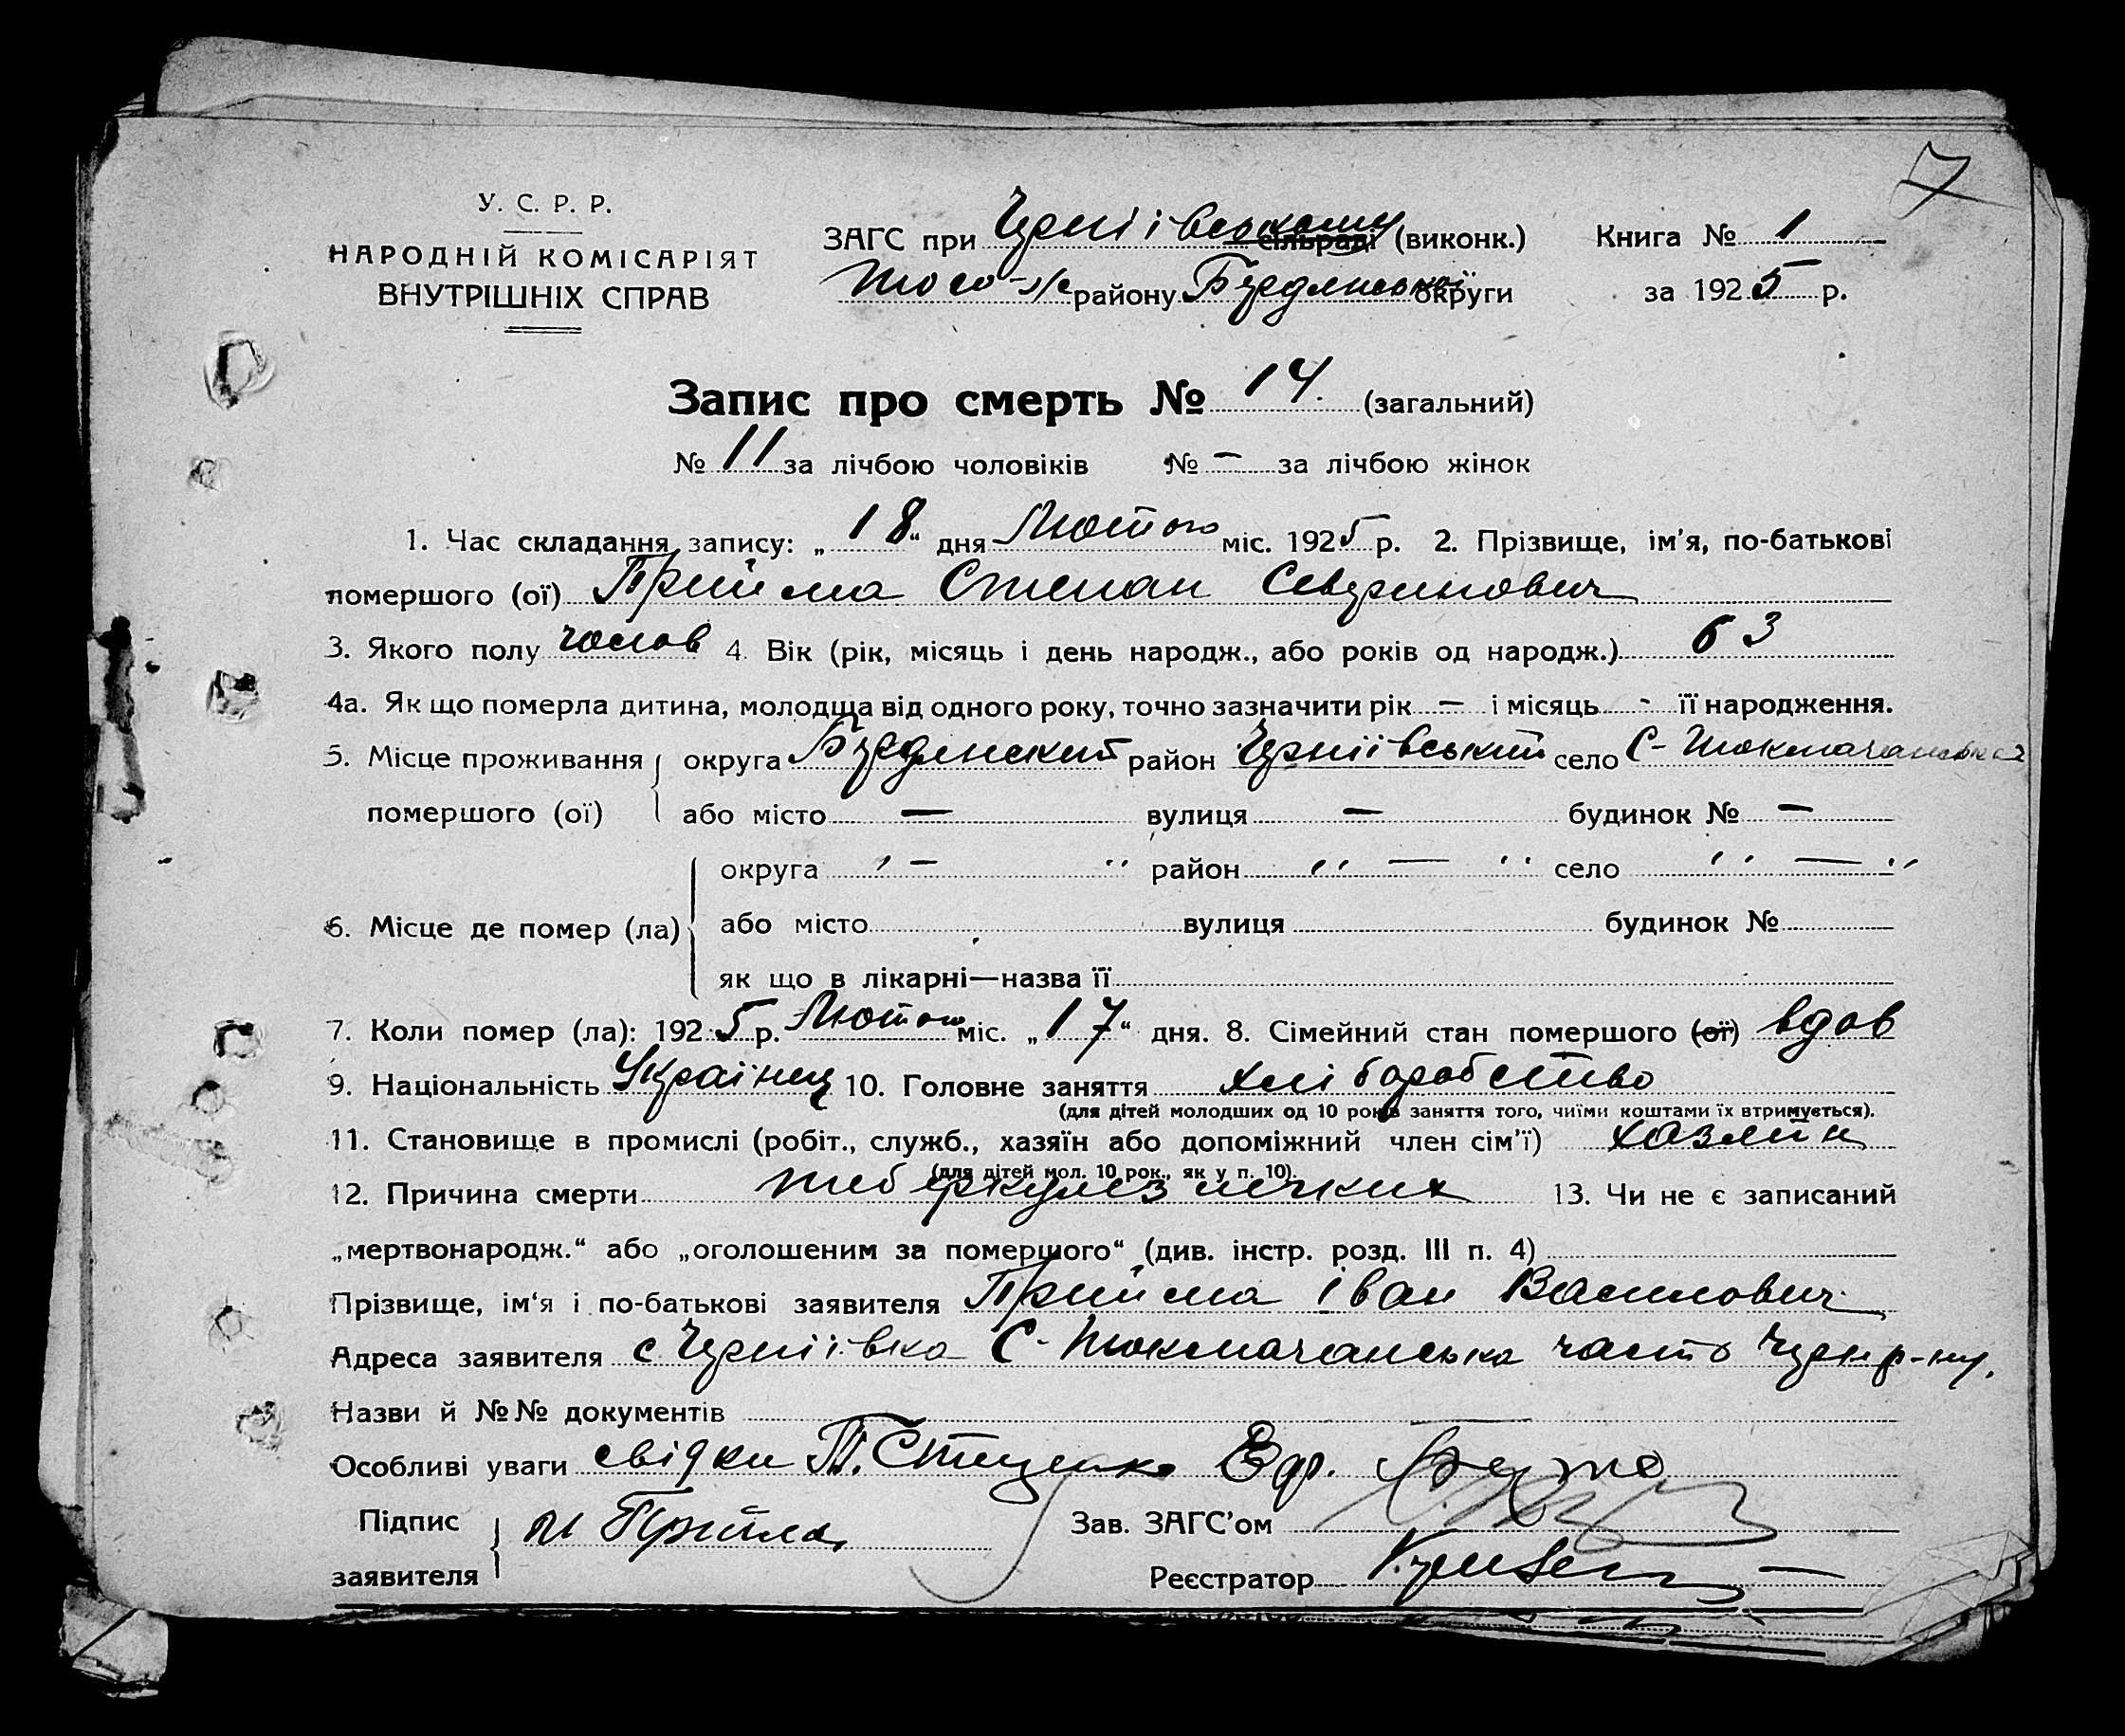 7
У. С. Р. Р.
НАРОДНІЙ КОМІСАРІЯТ
ВНУТРІШНІХ СПРАВ
ЗАГС при Черніівському сільраді (виконк.) Книга № 1
району Бердянської округи за 1925 р.
Запис про смерть № 14. (загальний)
№ 11 за лічбою чоловіків № — за лічбою жінок
1. Час складання запису: „18“ дня Лютого міс. 1925 р. 2. Прізвище, ім'я, по-батькові
помершого (ої) Прийма Степан Северинович
3. Якого полу чолов 4. Вік (рік, місяць і день народж., або років од народж.) 63
4а. Як що померла дитина, молодща від одного року, точно зазначити рік — і місяць - її народження.
5. Місце проживання округа Бердянский район Черніівський село С-Токмачанська
помершого (ої) або місто — вулиця — будинок № —
округа „ — „ район „ — „ село „ — „
6. Місце де помер (ла) або місто вулиця будинок №
як що в лікарні—назва її
7. Коли помер (ла): 1925 р. Лютого міс. „17“ дня. 8. Сімейний стан помершого (ої) вдов
9. Національність Українец 10. Головне заняття хліборобство
(для дітей молодших од 10 років заняття того, чиїми коштами їх втримується).
11. Становище в промислі (робіт., служб., хазяїн або допоміжний член сім'ї) хозяйн
(для дітей мол. 10 рок., як у п. 10).
12. Причина смерти теберкулез легких 13. Чи не є записаний
„мертвонародж.“ або „оголошеним за помершого“ (див. інстр. розд. III п. 4)
Прізвище, ім'я і по-батькові заявителя Прийма Іван Василович
Адреса заявителя с Черніівка С-Токмачанська часть Черн р-ну.
Назви й №№ документів
Особливі уваги свідки П. Стеценко
Підпис и Прийма Зав. ЗАГС'ом
заявителя Реєстратор